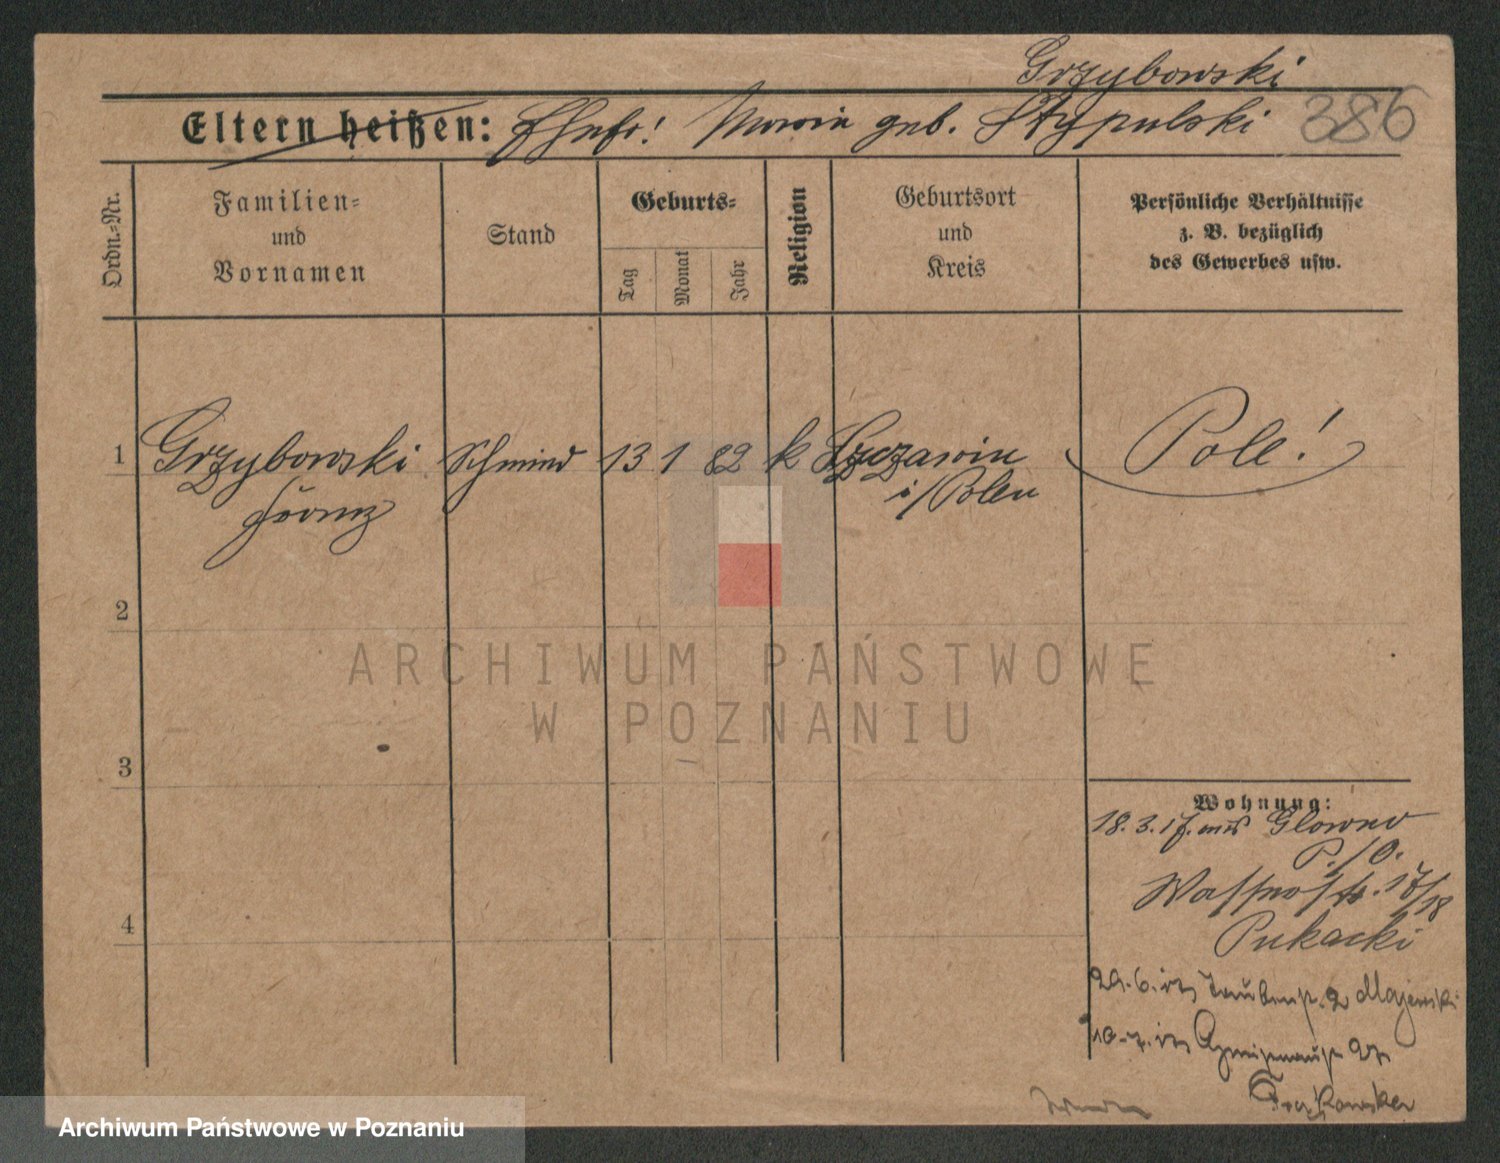 Grzybowski
Eltern heißen: Ehefr! Maria geb. Stypulski 386
Ordn.=Nr.
Familien=
und
Vornamen
Stand
Geburts=
Tag
Monat
Jahr
Religion
Geburtsort
und
Kreis
Persönliche Verhältnisse
z. B. bezüglich
des Gewerbes usw.
1 Grzybowski Schmied 13 1 82 k Szczawin Pole!
Franz i/Polen
2
ARCHIWUM PAŃSTWOWE
W POZNANIU
3
Wohnung:
18.3.17. aus Glowno
P./O.
Wallstr. 17/18
Pukacki
29.6.17 Taubenstr. 2 Majewski
4
10.7.17
Archiwum Państwowe w Poznaniu